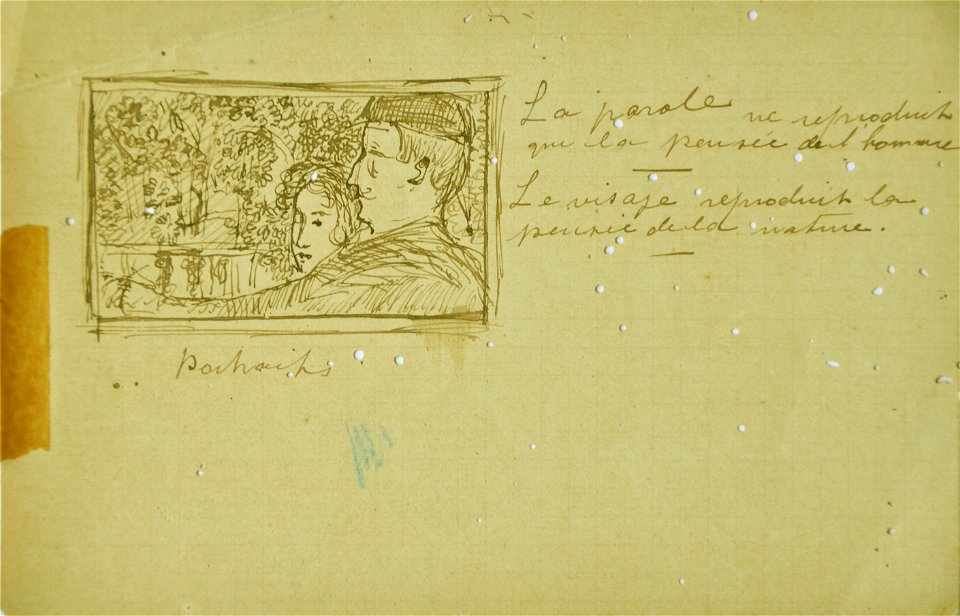 La parole ne reproduit
que la pensée de l'homme
Le visage reproduit la
pensée de la nature.
Portraits